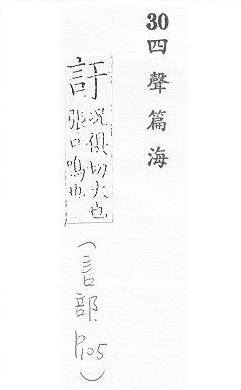 30四聲篇海
訏
況俱切大也
張口鳴也
（言部P105）